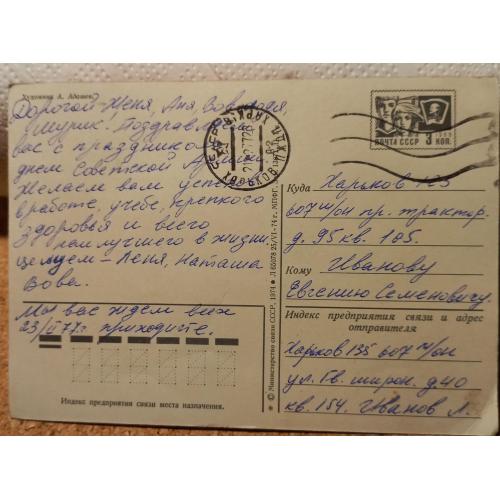 Художник А. Адошев
Дорогой Женя, Аня, Вов
Шурик! Поздравл
вас с праздником
днем Советской Армии
Желаем вам успе
в работе, учебе, крепкого
Здоровья и всего
наилучшего в жизни
целуем - Лёня, Наташа
Вова.
Мы вас ждем всех
23/II 77г приходите.
Индекс предприятия связи места назначения.
© Министерство связи СССР, 1974
ХАРЬКОВ
ПОЧТА СССР 3 КОП.
Куда Харьков 123
607 м/он пр. трактор.
д. 95 кв. 105.
Кому Иванову
Евгению Семеновичу.
Индекс предприятия связи и адрес
отправителя
Харьков 135 607 м/он
ул. Гв. широн. д 40
кв. 154. Иванов Л.